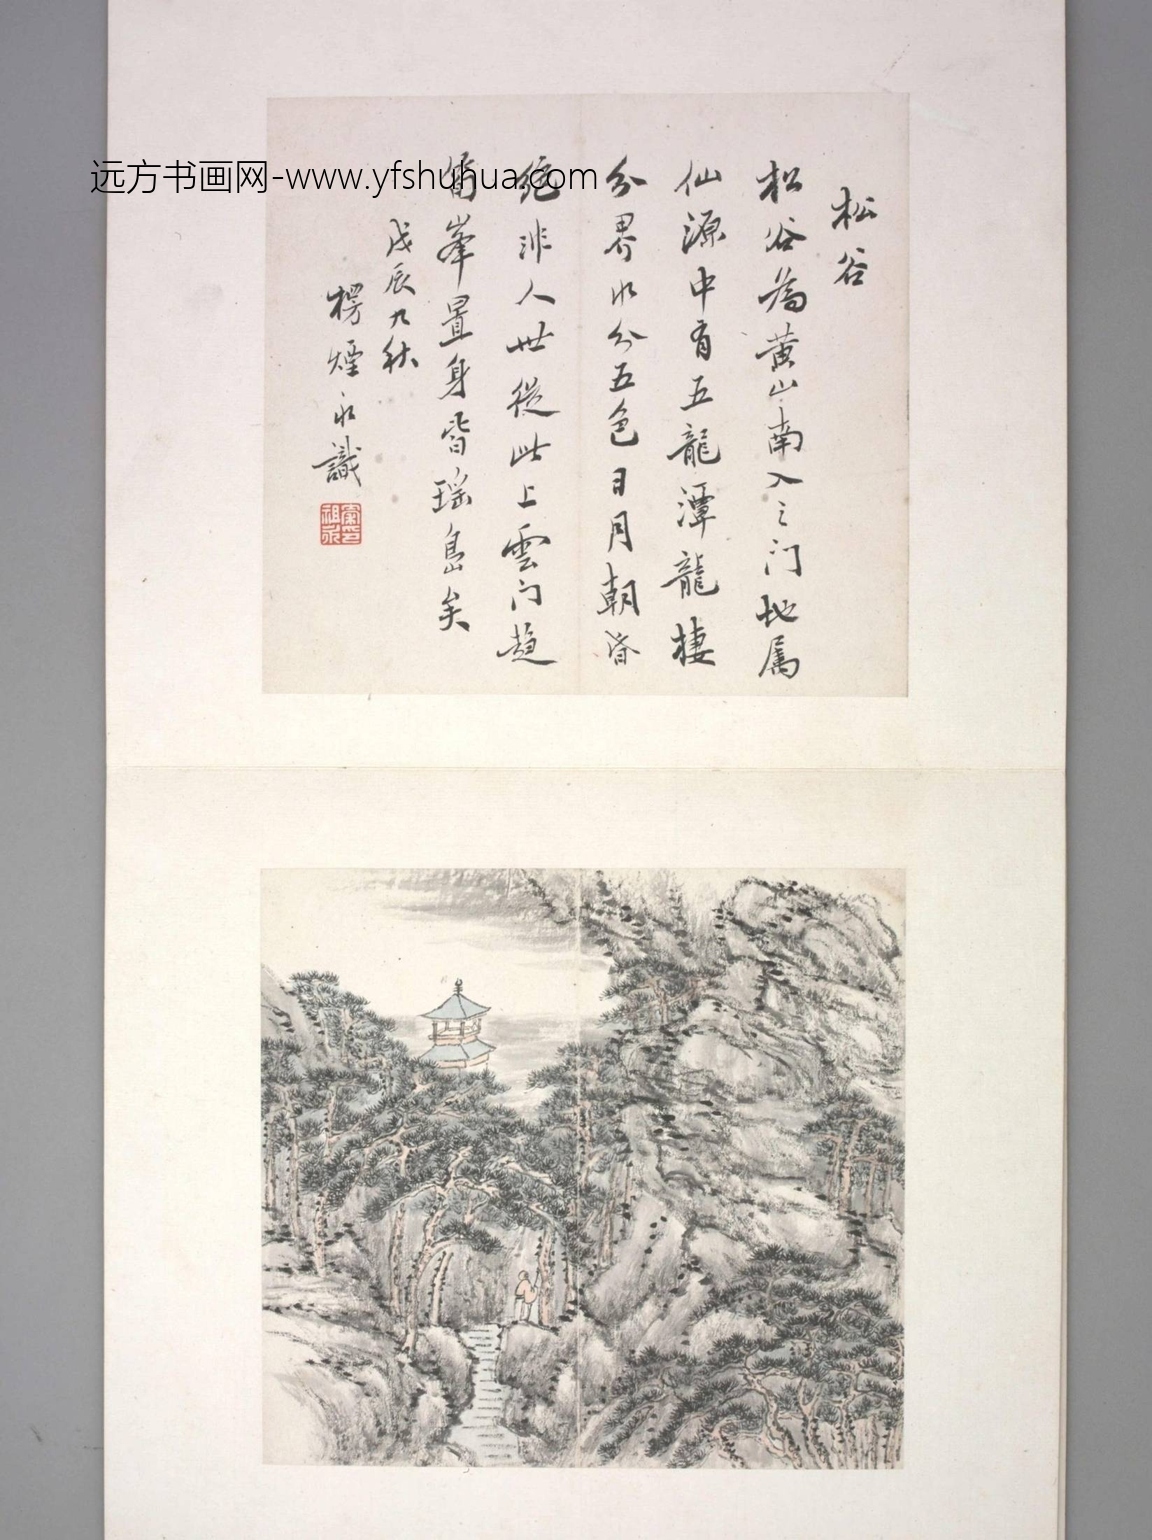 远方书画网-www.yfshuhua.com
松谷
松谷為黄山南入之门地属
仙源中有五龍潭龍棲
分界水分五色日月朝昏
絶非人世從此上雲门趋
峯置身皆瑶島矣
戊辰九秋
楞煙永識